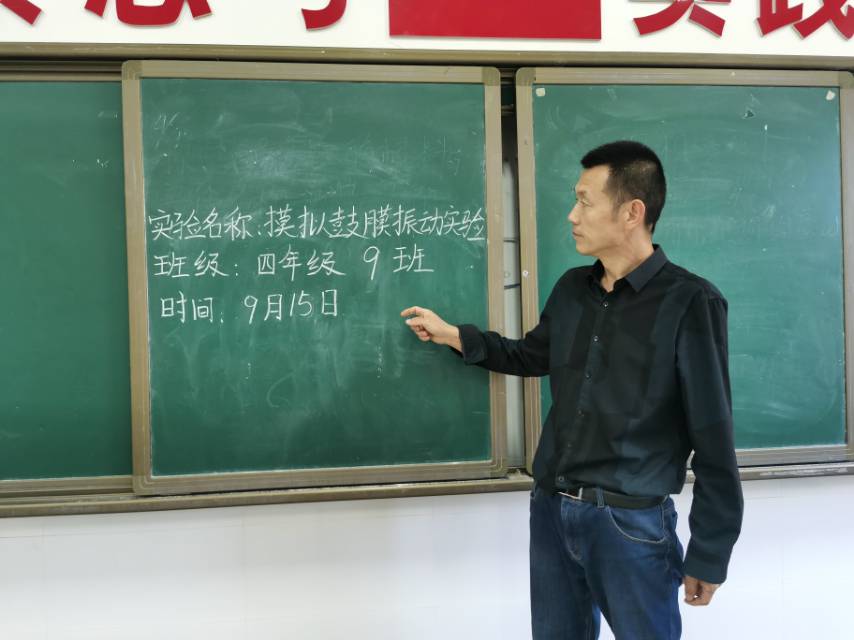 实验名称:模拟鼓膜振动实验
班级:四年级 9班
时间:9月15日